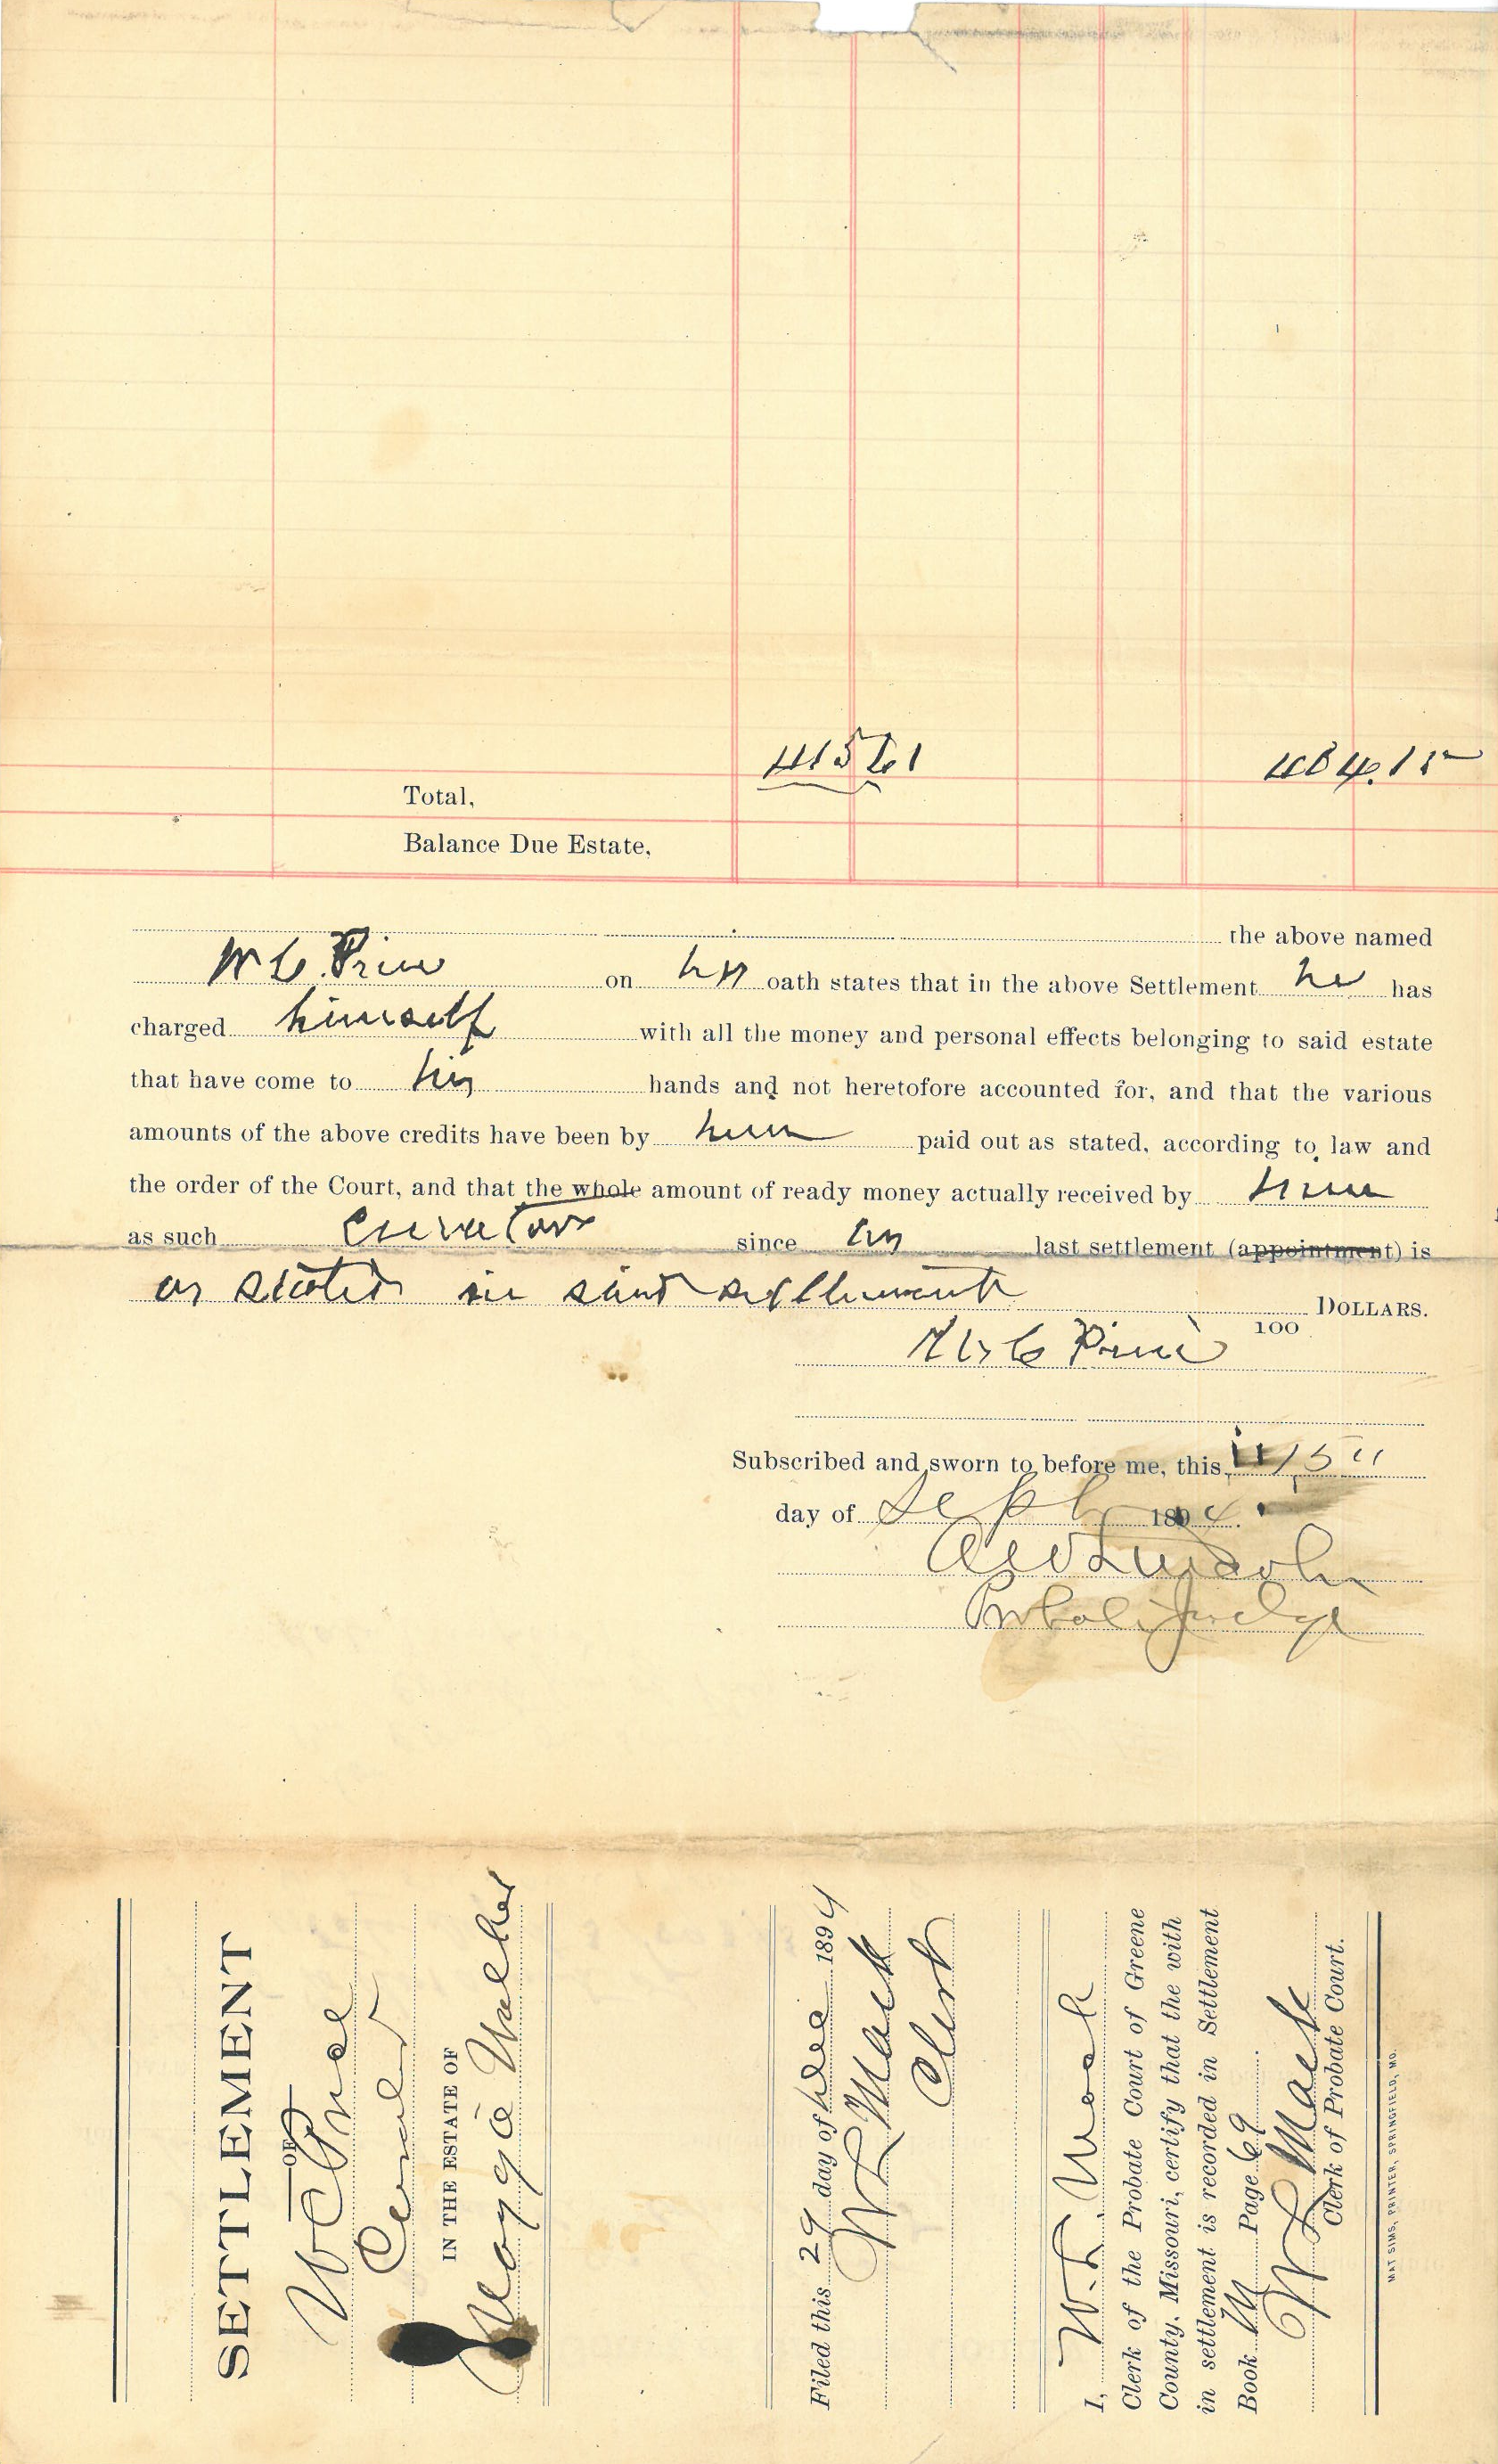 415 61 484.15
Total,
Balance Due Estate,
the above named
W C. Price on his oath states that in the above Settlement he has
charged himself with all the money and personal effects belonging to said estate
that have come to his hands and not heretofore accounted for, and that the various
amounts of the above credits have been by him paid out as stated, according to law and
the order of the Court, and that the whole amount of ready money actually received by him
as such Curator since his last settlement (appointment) is
as stated in said settlement DOLLARS.
100
W C Price
Subscribed and sworn to before me, this 15"
day of Sept 1894.
Probate Judge
SETTLEMENT
OF
W C Price
Curator
IN THE ESTATE OF
Walker
Filed this 29 day of Dec 1894
W L Mack
Clerk
I, W. L. Mack
Clerk of the Probate Court of Greene
County, Missouri, certify that the with
in settlement is recorded in Settlement
Book M Page 69
W L Mack
Clerk of Probate Court.
MAT SIMS, PRINTER, SPRINGFIELD, MO.